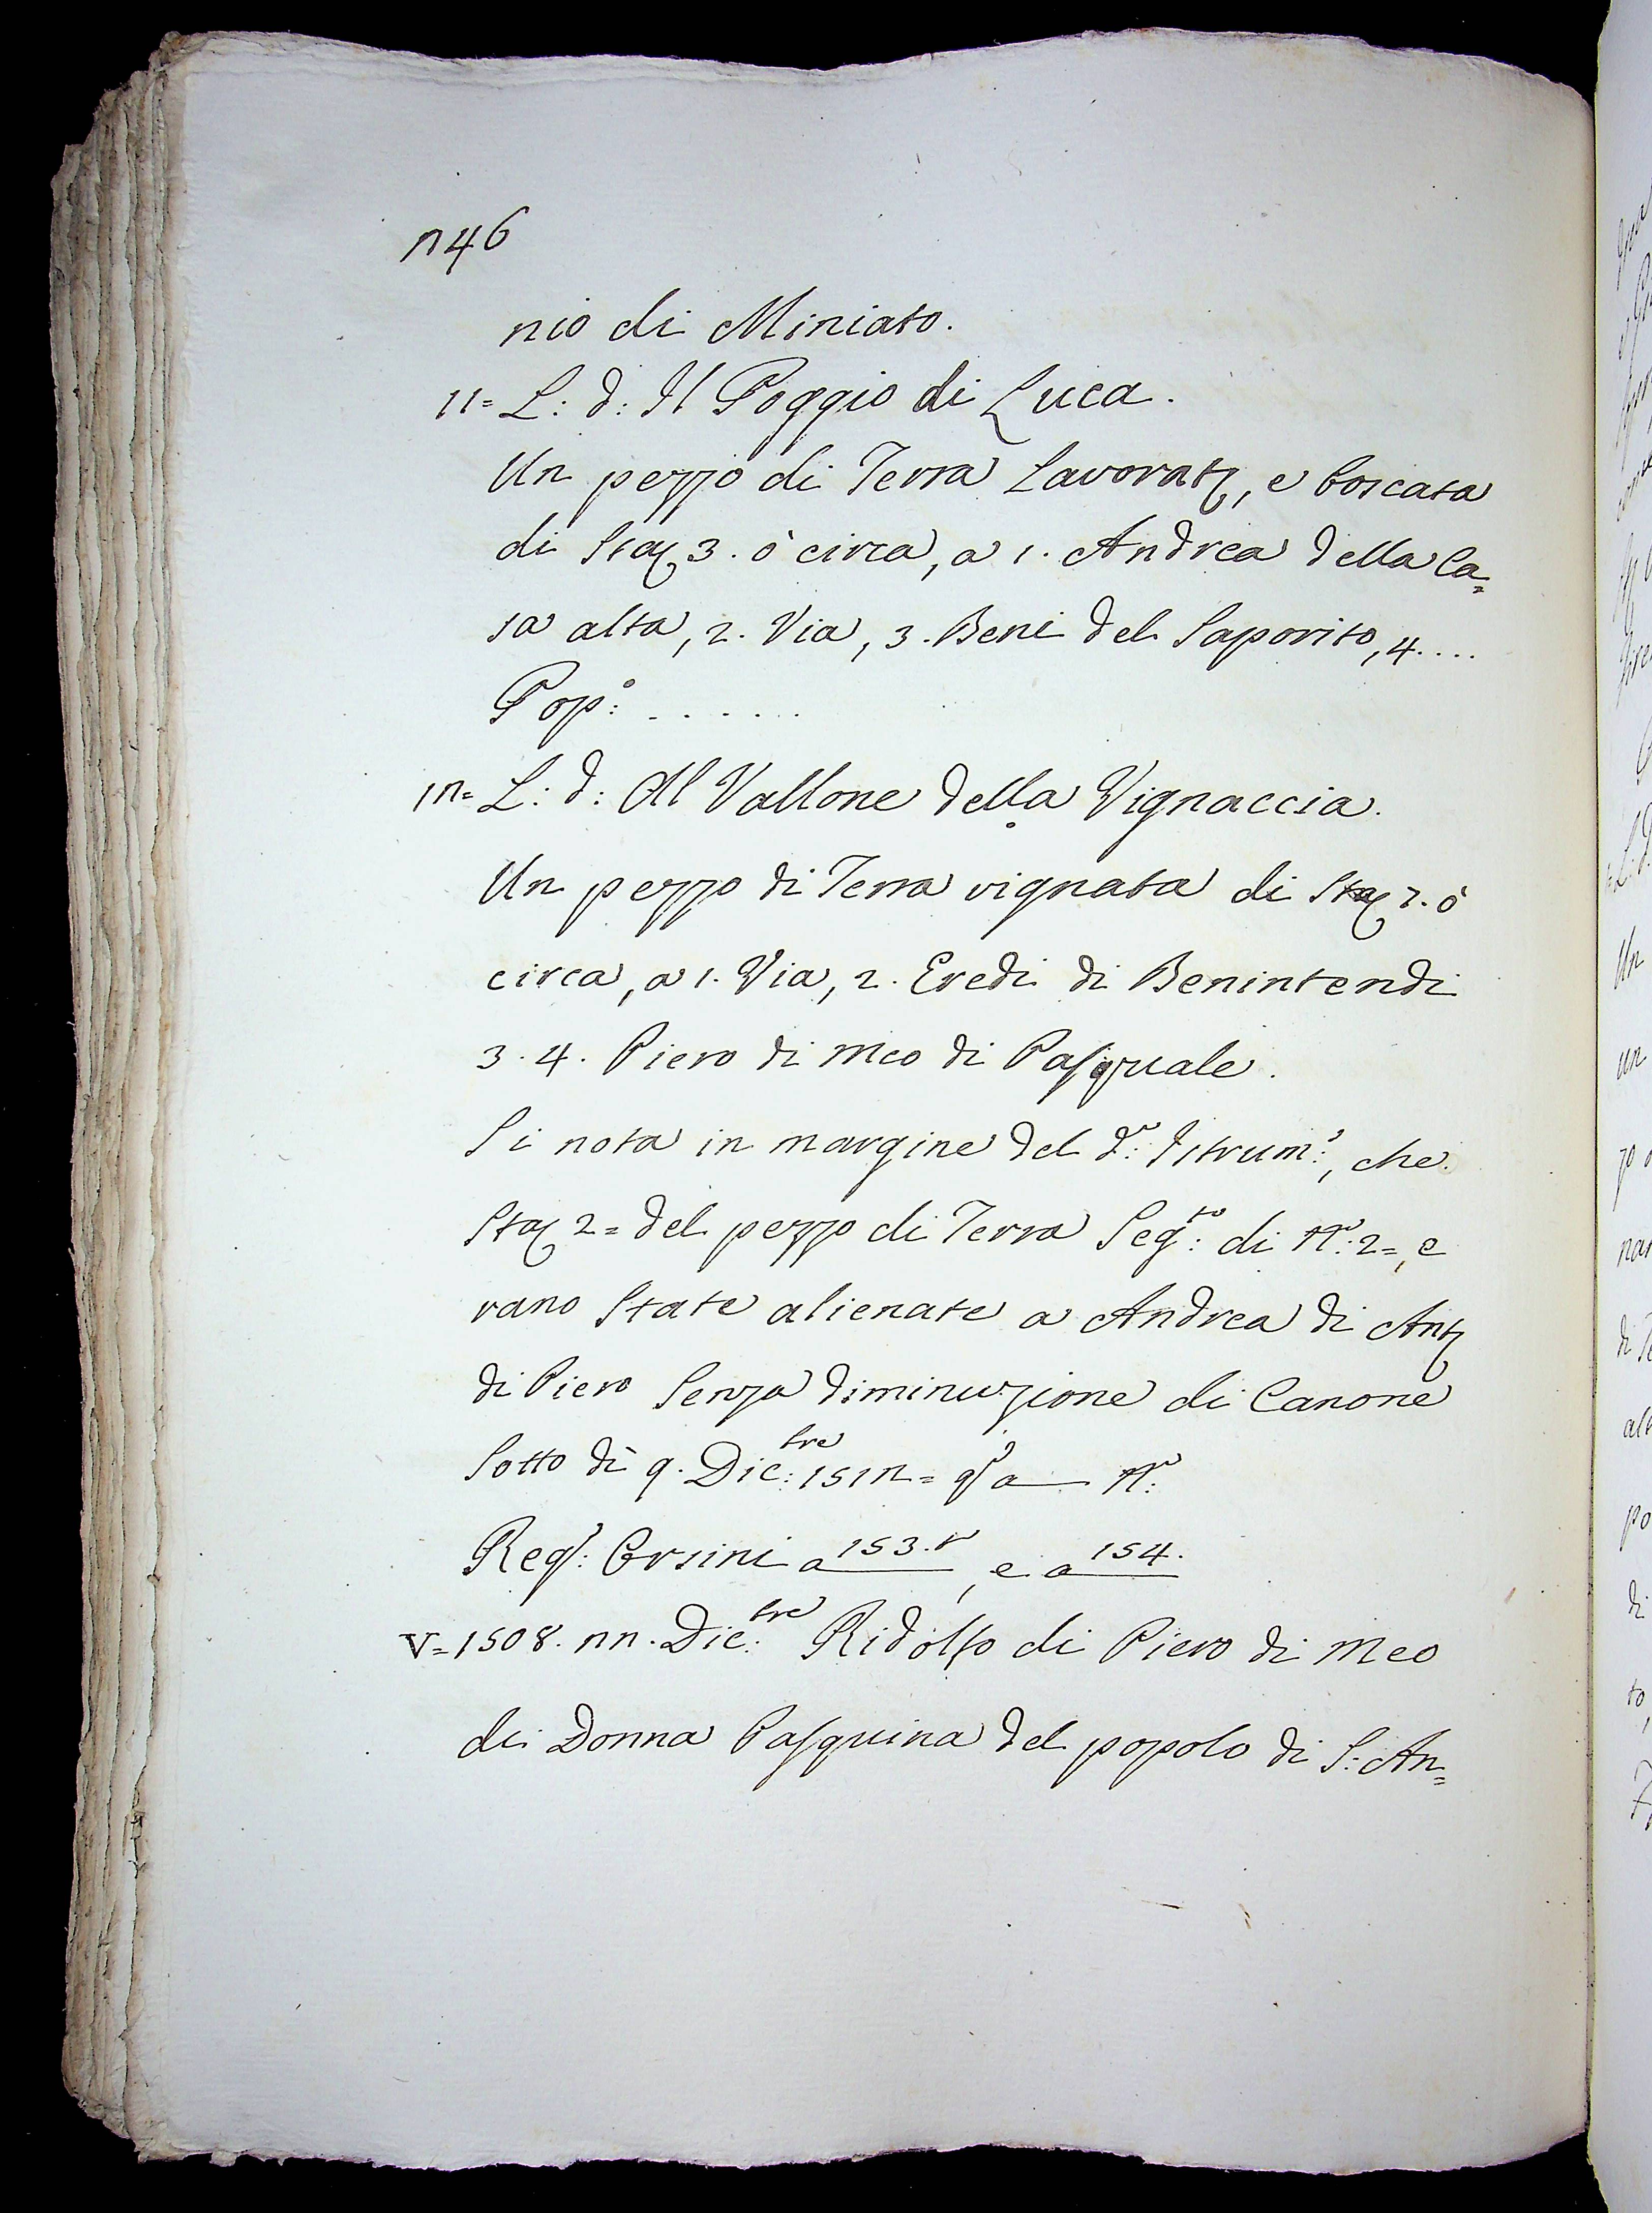 246
nio di Miniato.
11= L: d: Il Poggio di Luca.
Un pezzo di Terra Lavorat, e boscata
di Sta 3. ò circa, a 1. Andrea della Ca=
sa alta, 2. Via, 3. Beni del Saporito, 4....
Pop:º ......
12= L: d: Al Vallone della Vignaccia.
Un pezzo di Terra vignata di Sta 2. ò
circa, a 1. Via, 2. Eredi di Benintendi
3. 4. Piero di Meo di Pasquale.
Si nota in margine del d:º Istrum:º, che
Sta 2= del pezzo di Terra Seg:to di N:º 2=, e
rano State alienate a Andrea di Ant
di Piero Senza diminuzione di Canone
Sotto dì 9. Dic:bre 1512=
Reg: Orsini a 153.t, e a 154.
V= 1508. 22. Dic:bre Ridolfo di Piero di Meo
di Donna Pasquina del popolo di S: An=